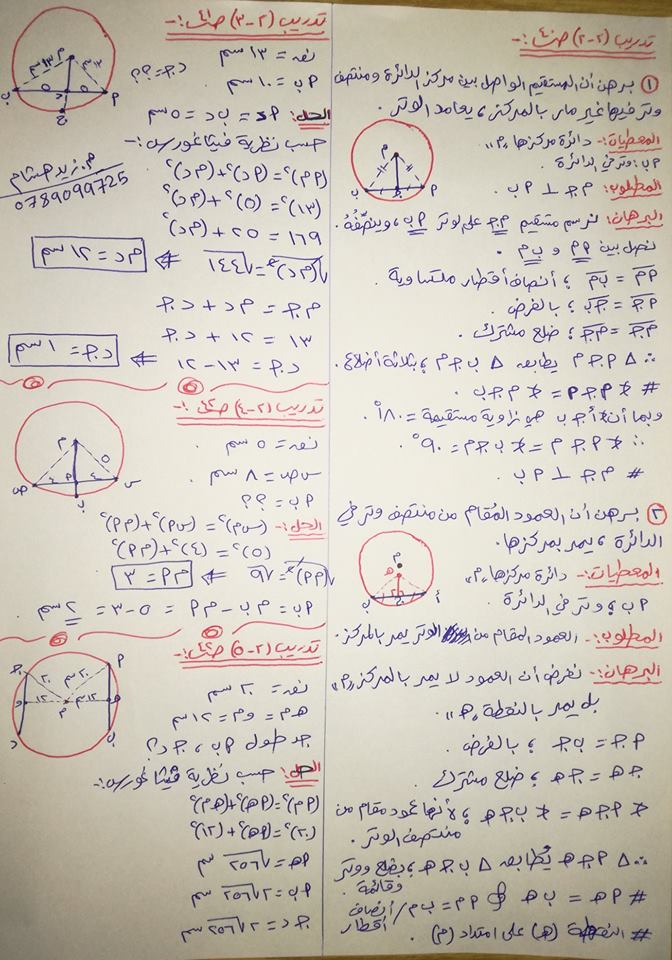 تدريب (٢-٢) ص٤٠ :-
① برهن أن المستقيم الواصل بين مركز الدائرة ومنتصف
وتر فيها غير مار بالمركز، يعامد الوتر.
المعطيات:- دائرة مركزها "م"
أب: وتر في الدائرة
المطلوب: م جـ ⊥ أ ب
البرهان: نرسم مستقيم م جـ على لوتر أب، وينصّفُهُ.
نصل بين أ م و ب م
أم = بم ؛ أنصاف أقطار متساوية
أجـ = جـب ؛ بالفرض
مجـ = مجـ ؛ ضلع مشترك
∴ Δ أ جـ م يطابق Δ ب جـ م ؛ بثلاثة أضلاع.
# ∢ أجـم = ∢ مجـب
وبما أن ∢ أجـب هي زاوية مستقيمة = ١٨٠°
∴ ∢ أجـ م = ∢ ب جـ م = ٩٠°
# م جـ ⊥ أ ب
② برهن أن العمود المُقام من منتصف وتر في
الدائرة، يمر بمركزها.
المعطيات:- دائرة مركزها "م"
أ ب ؛ وتر في الدائرة
المطلوب:- العمود المقام من الوتر يمر بالمركز.
البرهان:- نفرض أن العمود لا يمر بالمركز "م"
بل يمر بالنقطة "هـ"
أ جـ = ب جـ ؛ بالفرض
جـ هـ = جـ هـ ؛ ضلع مشترك
∢ أ جـ هـ = ∢ ب جـ هـ ؛ لأنها عمود مقام من
منتصف الوتر.
∴ Δ أ جـ هـ يُطابق Δ ب جـ هـ ؛ بضلع ووتر
وقائمة.
# أهـ = ب هـ أم = ب م / أنصاف
أقطار
# النقطة (هـ) على امتداد (م).
تدريب (٢-٣) ص٤١ :-
نق = ١٣ سم
أب = ١٠ سم
دجـ = ؟؟
الحل: أد = ب د = ٥ سم
حسب نظرية فيثاغورس :-
(أم)² = (أد)² + (م د)²
(١٣)² = (٥)² + (م د)²
١٦٩ = ٢٥ + (م د)²
√(م د)² = √١٤٤ ⇐ م د = ١٢ سم
م جـ = م د + د جـ
١٣ = ١٢ + د جـ
د جـ = ١٣ - ١٢ ⇐ د جـ = ١ سم
م. زيد هشام
0789099725
تدريب (٢-٤) ص٤٢ :-
نق = ٥ سم
س ص = ٨ سم
أب = ؟؟
الحل:- (س م)² = (س أ)² + (أ م)²
(٥)² = (٤)² + (أ م)²
√(أ م)² = √٩ ⇐ م أ = ٣
أ ب = م ب - م أ = ٥ - ٣ = ٢ سم
تدريب (٢-٥) ص٤٢ :-
نق = ٢٠ سم
هـ م = و م = ١٢ سم
جد طول أ ب ، جـ د ؟
الحل: حسب نظرية فيثاغورس:
(أ م)² = (أ هـ)² + (هـ م)²
(٢٠)² = (أ هـ)² + (١٢)²
أ هـ = √٢٥٦ سم
أ ب = ٢√٢٥٦ سم
جـ د = ٢√٢٥٦ سم